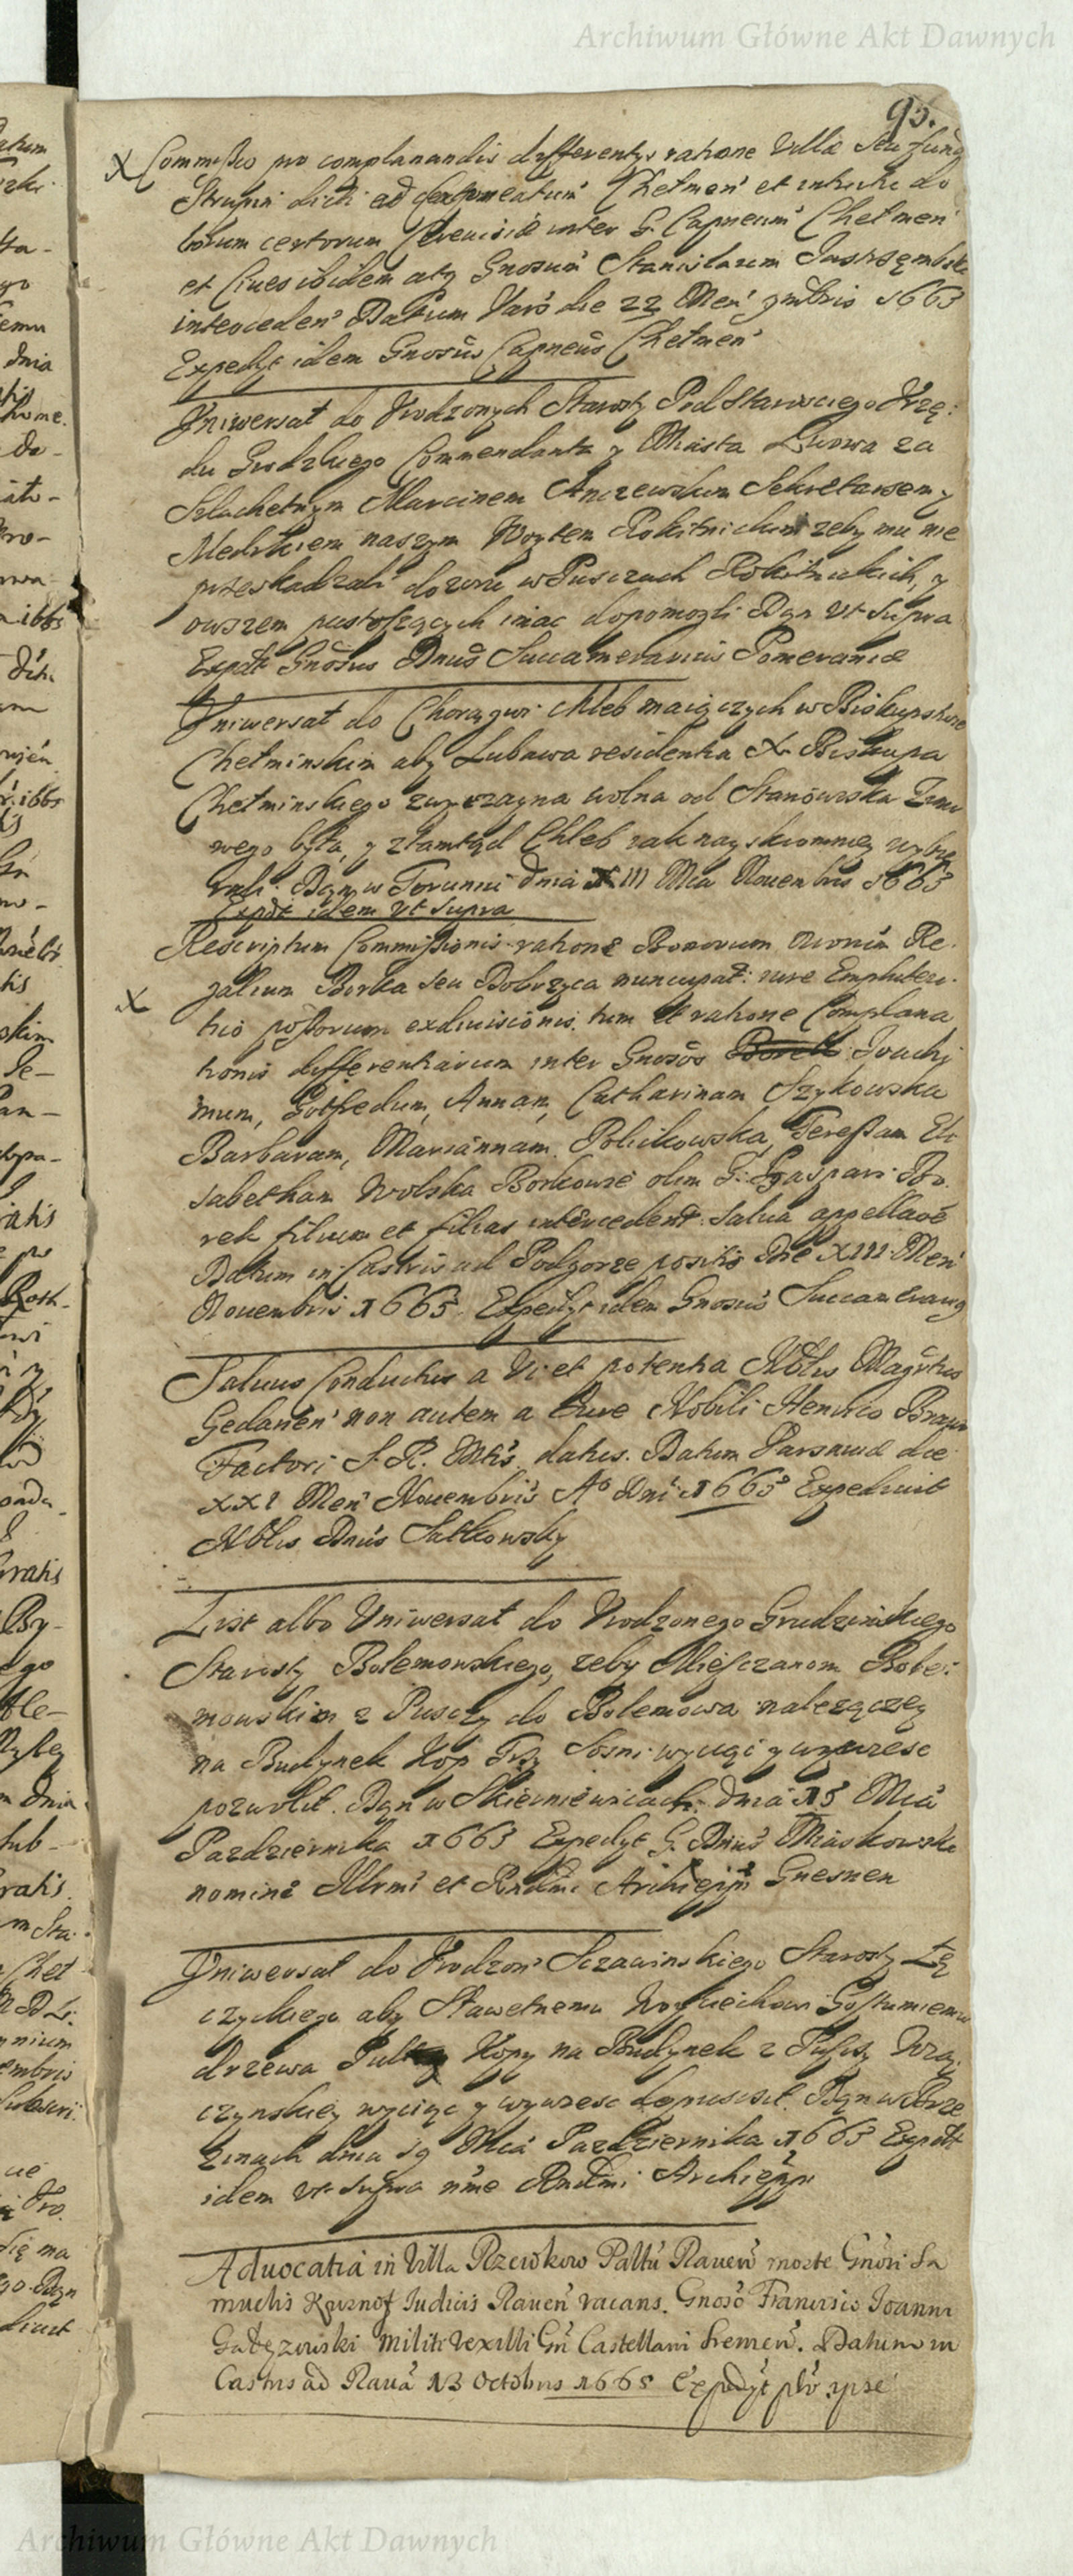 Archiwum Główne Akt Dawnych
95.
X Commissio pro complanandis differentys ratione Villæ seu fund
Strupin dicti ad Capitaneatum Chełmen et
lorum certorum Cerevisiæ inter G. Capneum Chełmen
et Cives ibidem atq Gnosum Stanislaum Jastrzembski
interceden Datum Vars die 22 Men 9mbris 1665
Expedyt idem Gnosus Capneus Chełmen
Uniwersał do Urodzonych Starosty Pod Starosciego Urzę:
du Grodzkiego Commendanta y Miasta Lwowa za
Szlachetnym Marcinem Anczewskim Sekretarzem y
Medykiem naszym Woytem Rokitnickim zeby mu nie
przeskadzali dozoru w Puszczach Rokitnickich, y
owszem pustoszących imac dopomogli Dan vt Supra
Expdt Gnosus Dnus Succamerarius Pomeraniæ
Uniwersał do Chorągwi Chleb maiączych w Biskupstwie
Chełminskim aby Lubawa residentia X Biskupa
Chełminskiego zwyczayna wolna od Stanowiska Zimo
wego była, y ztamtąd Chleb iak nayskromniey wybie
rali. Dan w Toruniu Dnia III Mca Nouembris 1665
Expdt idem vt Supra
Rescriptum Commissionis ratione Bonorum Re
X galium Borka seu Dobrzyca nuncupat: iure Emphiteu
tico possorum exdiuisionis, tum et ratione Complana
tionis differentiarum inter Gnosos Borek Joachi
mum, Gotfredum, Annam, Catharinam Szykowska
Barbaram, Mariannam, Policikowska, Teressam Eli
sabetham Wolska Borkowie olim G. Gaspari Bo
rek filium et filias intercedent. Salua appellaõe
Datum in Castris ad Podgorze positis Die XIII Men
Nouembris 1665. Expedyt idem Gnosus Succamerarius
Saluus Conductus a Vi et potentia Nblis Magrtus
Gedanen non autem a Iure Nobili Henrico Braun
Factori S. R. Mtis. datus. Datum Varsauiæ die
XXI Men Nouembris Ao Dni 1665 Expediuit
Nblis Dnus Satkowsky
List albo Uniwersał do Urodzonego Grudzinskiego
Starosty Bolemowskiego, zeby Miesczanom Bole:
mowskim z Pusczy do Bolemowa nalezączey
na Budynek Kop Trzy Sosni wyciąć y wywiesc
pozwolił. Dan w Skierniewicach. Dnia 15 Mca
Pazdziernika 1665 Expedyt G. Dnus Miaskowski
nomine Illrmi et Rndmi Archieppi Gnesnen
Uniwersał do Urodzon Sczawinskiego Starosty Łę
czyckiego aby Sławetnemu Woyciechowi
drzewa Kopy na Budynek z Puszczy
czynskiey wyciąc y wywiesc dopuscił. Dan w Brze
zinach dnia 19 Mca Pazdziernika 1665 Expdt
idem vt supra nme Rndmi Archieppi
Aduocatia in Villa Rzewkow Paltus Rauen morte Gnosi Sa
muelis Iudicis Rauen vacans. Gnoso Francisco Joanni
Gałęzowski Militi vexilli Gni Castellani Sremen. Datum in
Castris ad Rauã 13 Octobris 1665 Expedyt
Archiwum Główne Akt Dawnych